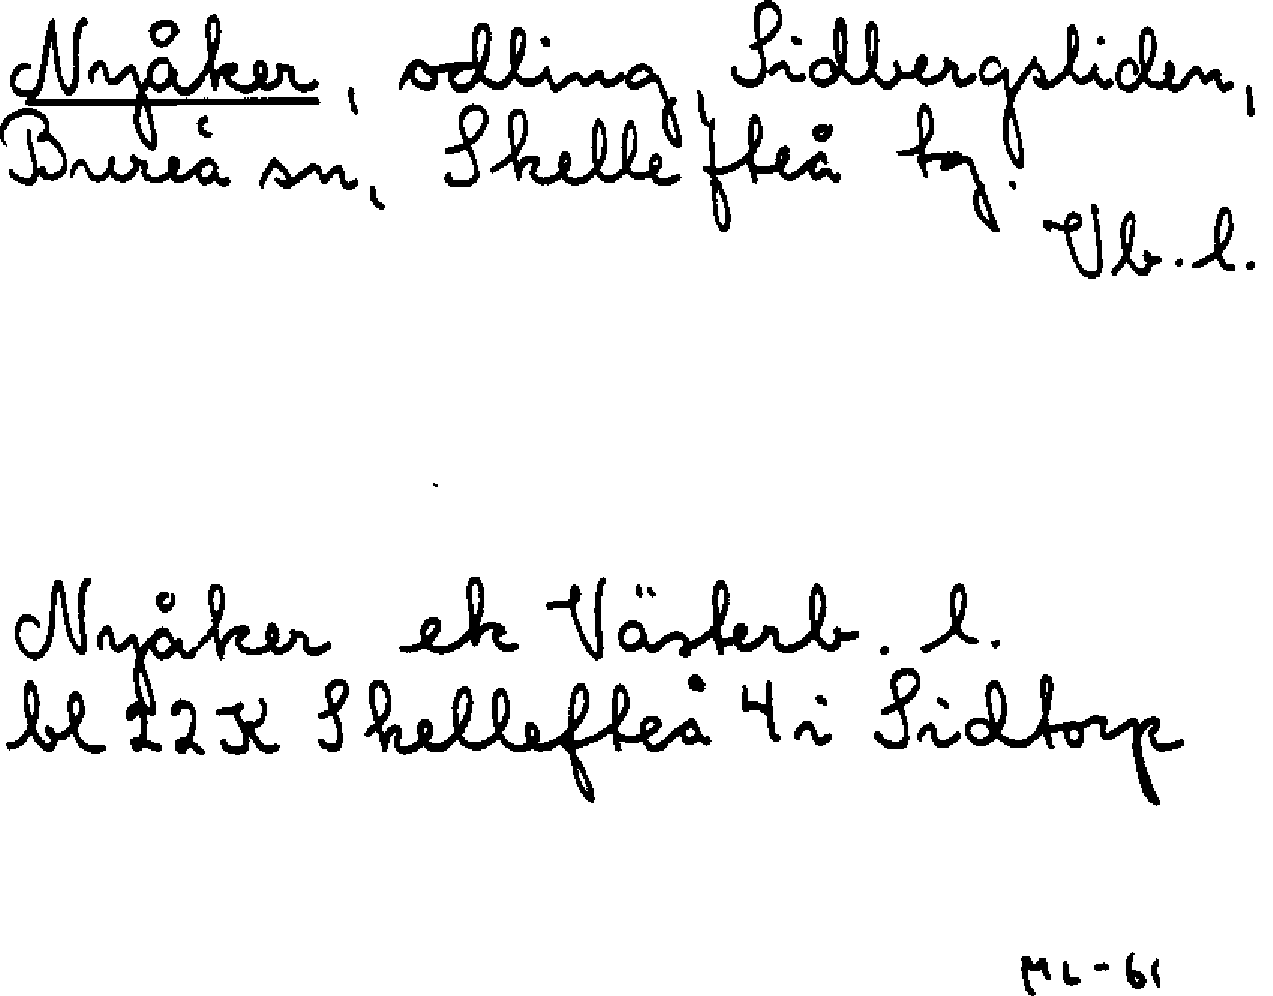 Nyåker, odling, Sidbergsliden,
Bureå sn, Skellefteå tg.
Vb. l.
Nyåker ek Västerb. l.
bl 22K Skellefteå 4i Sidtorp
ML-61